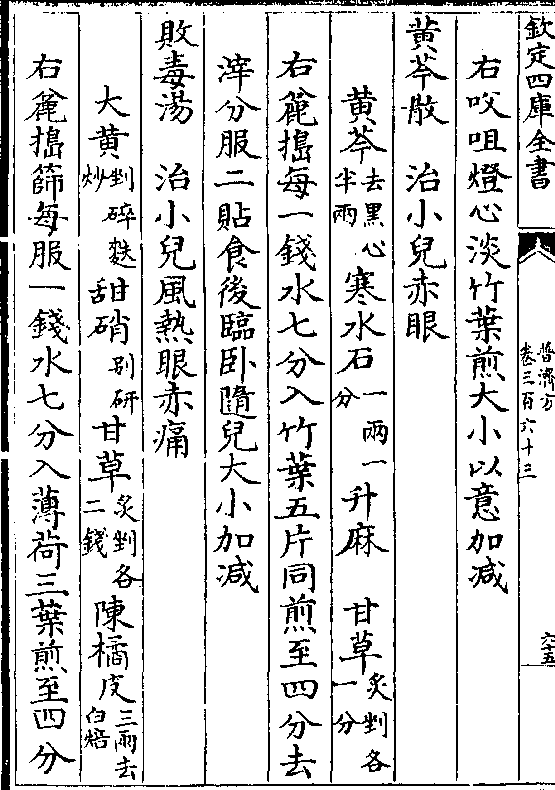 欽定四庫全書
普濟方
卷三百六十三
六十五
右㕮咀燈心淡竹葉煎大小以意加减
黄芩散　治小兒赤眼
黄芩去黒心半兩　寒水石一兩一分　升麻　甘草炙剉各一分
右麄搗每一錢水七分入竹葉五片同煎至四分去
滓分服二貼食後臨卧隨兒大小加减
敗毒湯　治小兒風熱眼赤痛
大黄剉碎麩炒　甜硝别研　甘草炙剉各二錢　陳橘皮三兩去白焙
右麄搗篩每服一錢水七分入薄荷三葉煎至四分